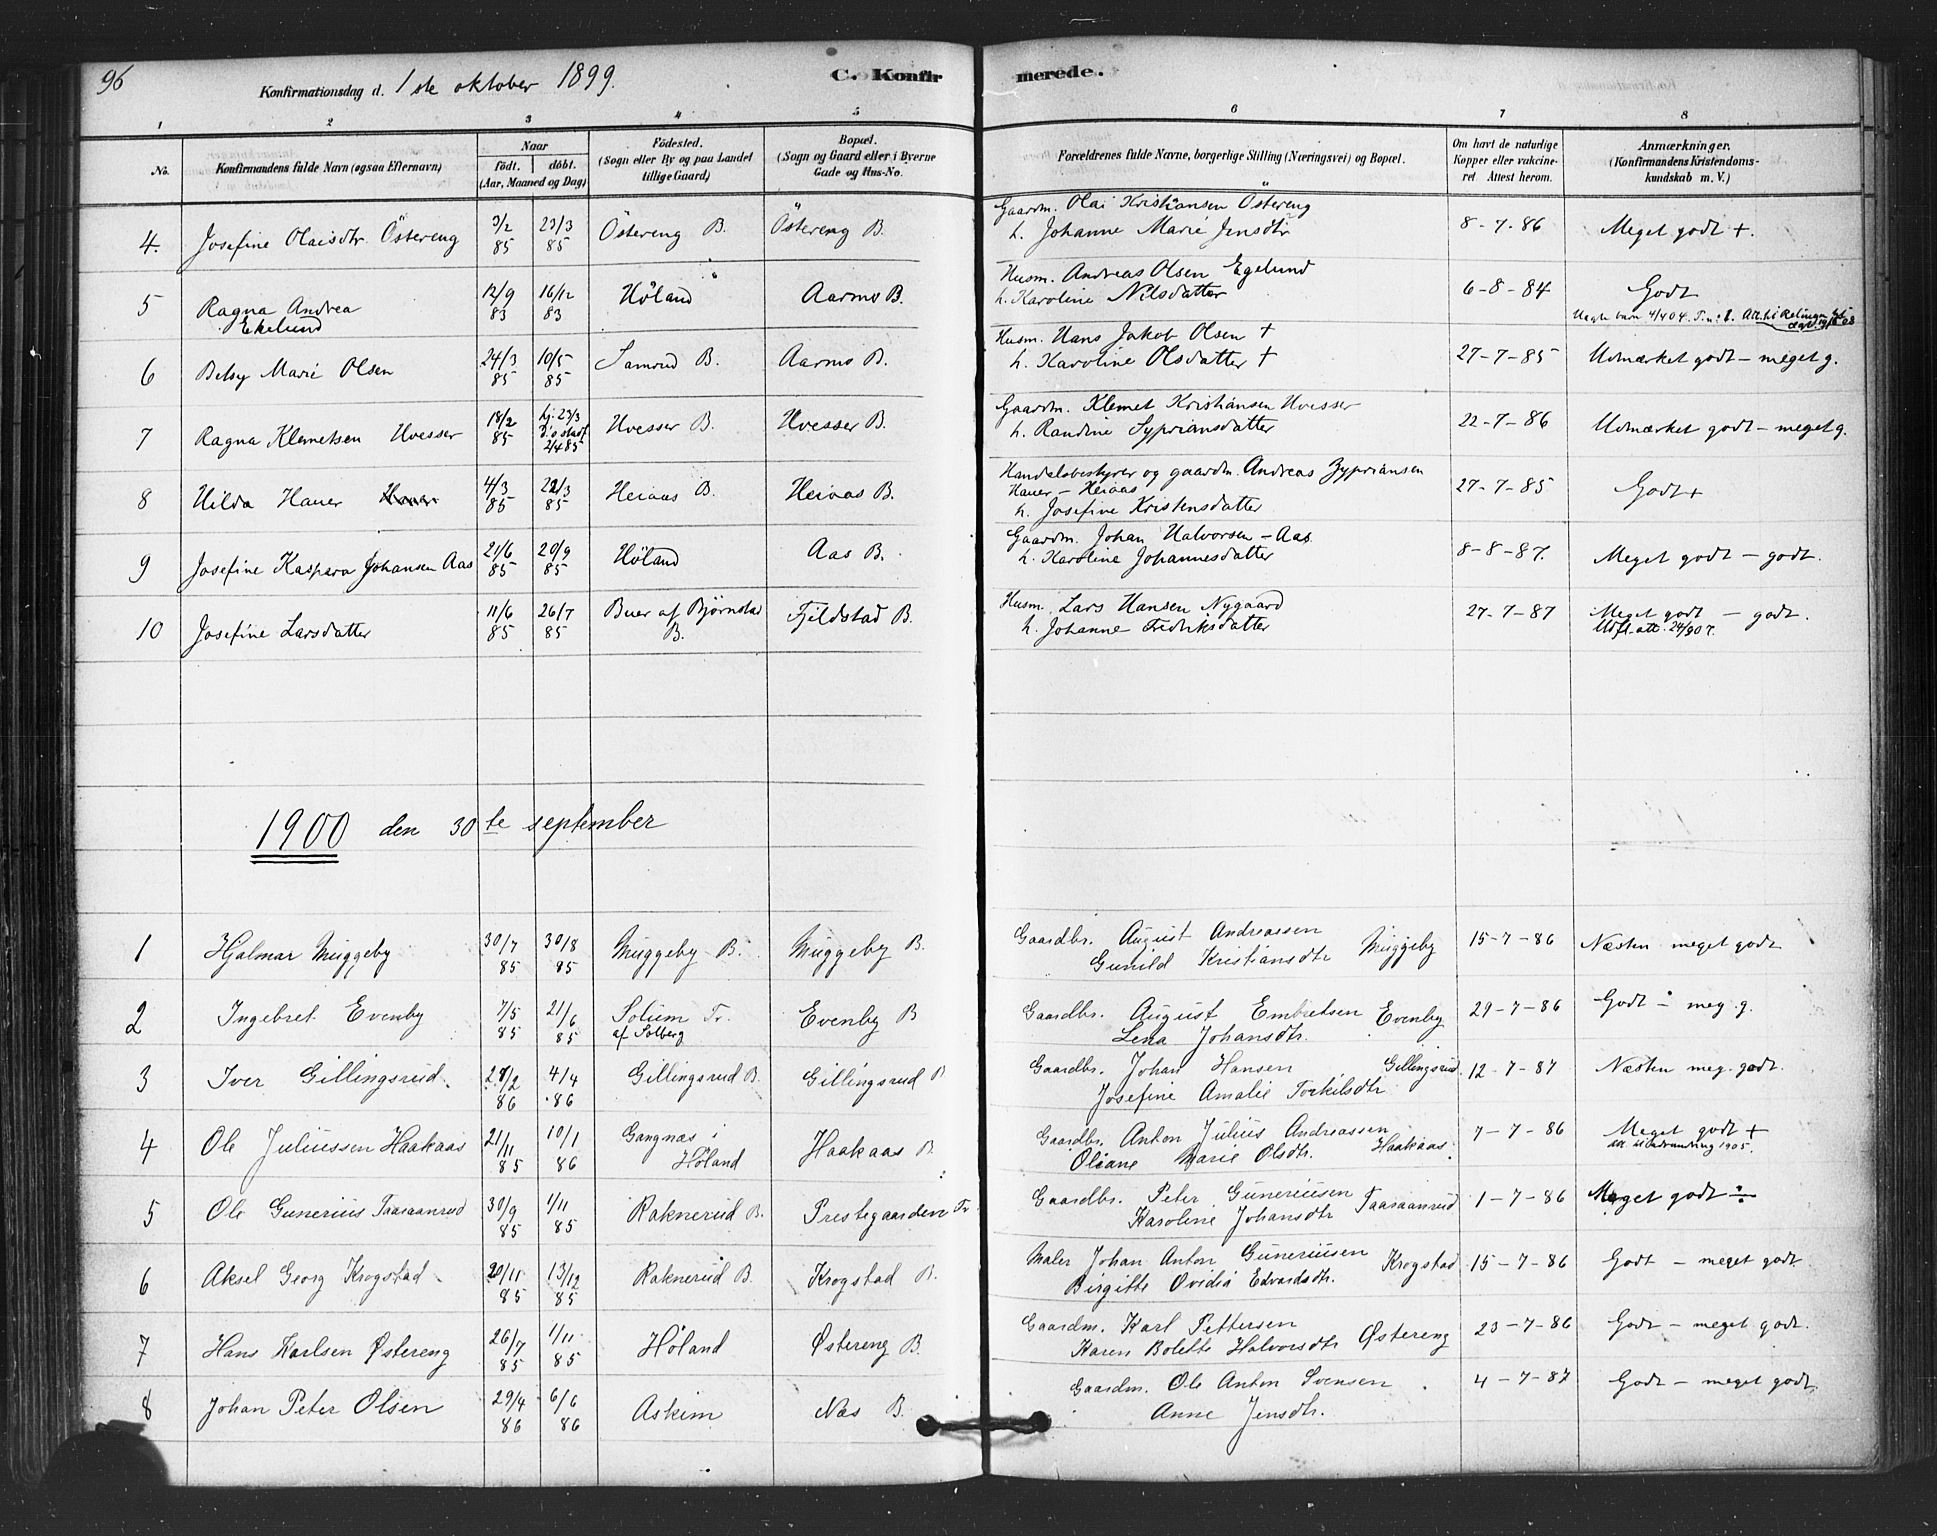 96
Konfirmationsdag d. 1ste oktober 1899.
C. Konfirmerede.
1 2 3 4 5 6 7 8
No. Konfirmandens fulde Navn (ogsaa Efternavn) Naar födt. döbt. (Aar, Maaned og Dag) Födested. (Sogn eller By og paa Landet tillige Gaard) Bopæl. (Sogn og Gaard eller i Byerne Gade og Hus-No. Forældrenes fulde Navne, borgerlige Stilling (Næringsvei) og Bopæl. Om havt de naturlige Kopper eller vakcineret. Attest herom. Anmærkninger. (Konfirmandens Kristendomskundskab m. V.)
4. Josefine Olaisdtr. Östereng 3/2 85 23/3 85 Östereng B. Östereng B. Gaardm. Olai Kristiansen Östereng h. Johanne Marie Jensdtr 8-7-86 Meget godt +.
5 Ragna Andrea Ekelund 12/9 83 16/12 83 Höland Aarmo B. Husm. Andreas Olsen Egelund h. Karoline Nilsdatter 6-8-84 Godt
6 Betsy Marie Olsen 24/3 85 10/5 85 Samrud B. Aarmo B. Husm. Hans Jakob Olsen + h. Karoline Olsdatter + 27-7-85 Udmærket godt - meget g.
7 Ragna Klemetsen Huesser 18/2 85 hj. 23/3 2/4 85 Huesser B. Huesser B. Gaardm. Klemet Kristiansen Huesser h. Randine Sypriansdatter 22-7-86 Udmærket godt - meget g.
8 Hilda Hauer 4/3 85 22/3 85 Heiaas B. Heiaas B. Handelsbestyrer og gaardm. Andreas Zypriansen Hauer - Heiaas h. Josefine Kristensdatter 27-7-85 Godt +
9 Josefine Kaspara Johansen Aas 21/6 85 20/9 85 Höland Aas B. Gaardm. Johan Halvorsen - Aas h. Karoline Johannesdatter 8-8-87. Meget godt - godt.
10 Josefine Larsdatter 11/6 85 26/7 85 Buer af Bjørnstad B. Fjeldstad B. Husm. Lars Hansen Nygaard h. Johanne Fredriksdatter 27-7-87 Meget godt - godt. Udfl. att. 24/9 07.
1900 den 30te september
1 Hjalmar Muggeby 30/7 85 30/8 85 Muggeby B. Muggeby B. Gaardbr. August Andreassen Gunild Kristiansdtr Muggeby 15-7-86 Næsten meget godt
2 Ingebret Evenby 7/5 85 21/6 85 Solum Tr. af Solberg Evenby B Gaardbr. August Embretsen Evenby Lena Johansdtr. 29-7-86 Godt - meg. g.
3 Iver Gillingsrud. 28/2 86 4/4 86 Gillingsrud B. Gillingsrud B Gaardbr. Johan Hansen Gillingsrud Josefine Amalie Torkilsdtr 12-7-87 Næsten meg. godt.
4 Ole Juliussen Haakaas 21/11 85 10/1 86 Gangnæs i Höland Haakaas B. Gaardbr. Anton Julius Andreassen Oliane Marie Olsdtr. Haakaas. 7-7-86 Meget godt + att. Udvandring 1905.
5 Ole Gunerius Taasaanrud 30/9 85 1/11 85 Raknerud B. Prestegaarden Tr Gaardbr. Peter Guneriusen Taasaanrud Karoline Johansdtr 1-7-86 Meget godt ÷
6 Aksel Georg Krogstad 20/11 85 13/12 85 Raknerud B. Krogstad B. Maler Johan Anton Guneriusen Krogstad Birgitte Ovidia Edvardsdtr. 15-7-86 Godt - meget godt
7 Hans Karlsen Østereng 26/7 85 1/11 85 Höland Østereng B. Gaardm. Karl Pettersen Karen Bolette Halvorsdtr Østereng 23-7-86 Godt - meget godt.
8 Johan Peter Olsen 29/4 86 6/6 86 Askim Næs B. Gaardm. Ole Anton Svensen Anne Jensdtr. 4-7-87 Godt - meget godt.